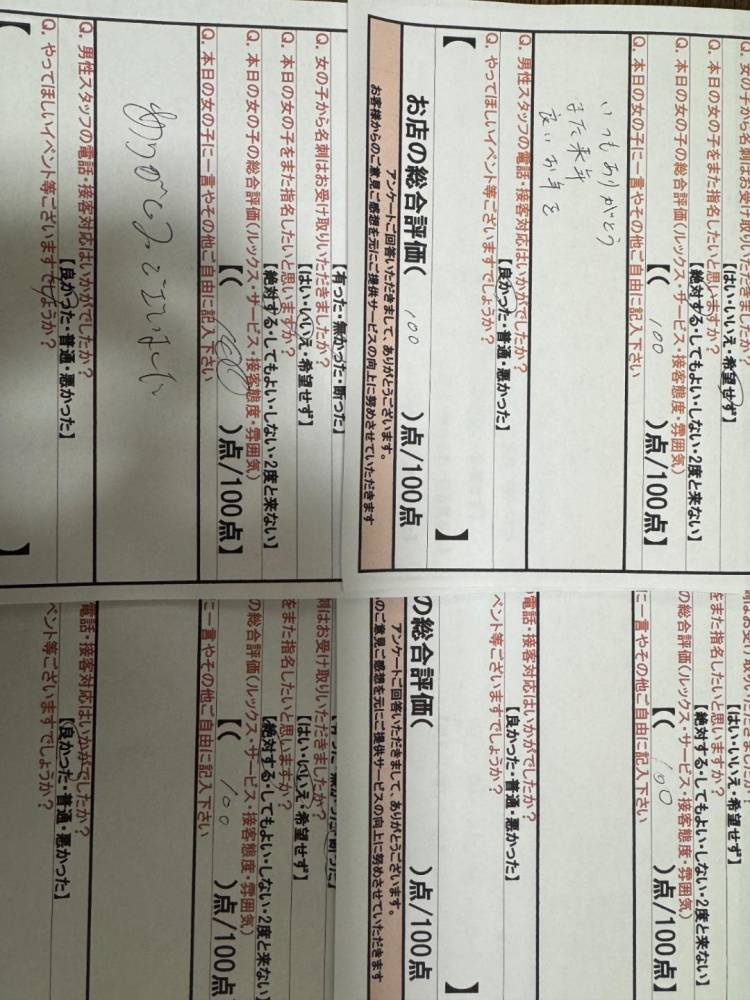 Q. 女の子から名刺はお受け取りいただきましたか?
【有った・無かった・断った】
Q. 本日の女の子をまた指名したいと思いますか?
【はい・いいえ・希望せず】
Q. 本日の女の子の総合評価(ルックス・サービス・接客態度・雰囲気)
【絶対する・してもよい・しない・2度と来ない】
【( 100 )点/100点】
Q. 本日の女の子に一言やその他ご自由に記入下さい
ありがとうございました
Q. 男性スタッフの電話・接客対応はいかがでしたか?
【良かった・普通・悪かった】
Q. やってほしいイベント等ございますでしょうか?
【 】
女の子から名刺はお受け取りいただきましたか?
【はい・いいえ・希望せず】
Q. 本日の女の子をまた指名したいと思いますか?
【絶対する・してもよい・しない・2度と来ない】
Q. 本日の女の子の総合評価(ルックス・サービス・接客態度・雰囲気)
【( 100 )点/100点】
Q. 本日の女の子に一言やその他ご自由に記入下さい
いつもありがとう
また来年
良いお年を
Q. 男性スタッフの電話・接客対応はいかがでしたか?
【良かった・普通・悪かった】
Q. やってほしいイベント等ございますでしょうか?
【 】
お店の総合評価( 100 )点/100点
アンケートご回答いただきまして、ありがとうございます。
お客様からのご意見ご感想を元にご提供サービスの向上に努めさせていただきます
刺はお受け取りいただきましたか?
【はい・いいえ・希望せず】
をまた指名したいと思いますか?
【絶対する・してもよい・しない・2度と来ない】
の総合評価(ルックス・サービス・接客態度・雰囲気)
【( 100 )点/100点】
に一言やその他ご自由に記入下さい
電話・接客対応はいかがでしたか?
【良かった・普通・悪かった】
ベント等ございますでしょうか?
はお受け取りいただきましたか?
【はい・いいえ・希望せず】
をまた指名したいと思いますか?
【絶対する・してもよい・しない・2度と来ない】
の総合評価(ルックス・サービス・接客態度・雰囲気)
【( 100 )点/100点】
に一言やその他ご自由に記入下さい
電話・接客対応はいかがでしたか?
【良かった・普通・悪かった】
ベント等ございますでしょうか?
】
の総合評価( )点/100点
アンケートご回答いただきまして、ありがとうございます。
のご意見ご感想を元にご提供サービスの向上に努めさせていただきます